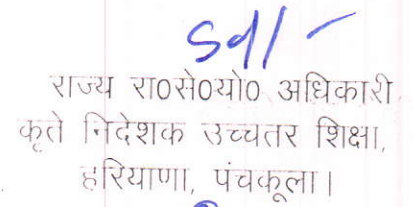 Sd/-
राज्य रा0से0यो0 अधिकारी
कृते निदेशक उच्चतर शिक्षा,
हरियाणा, पंचकूला।